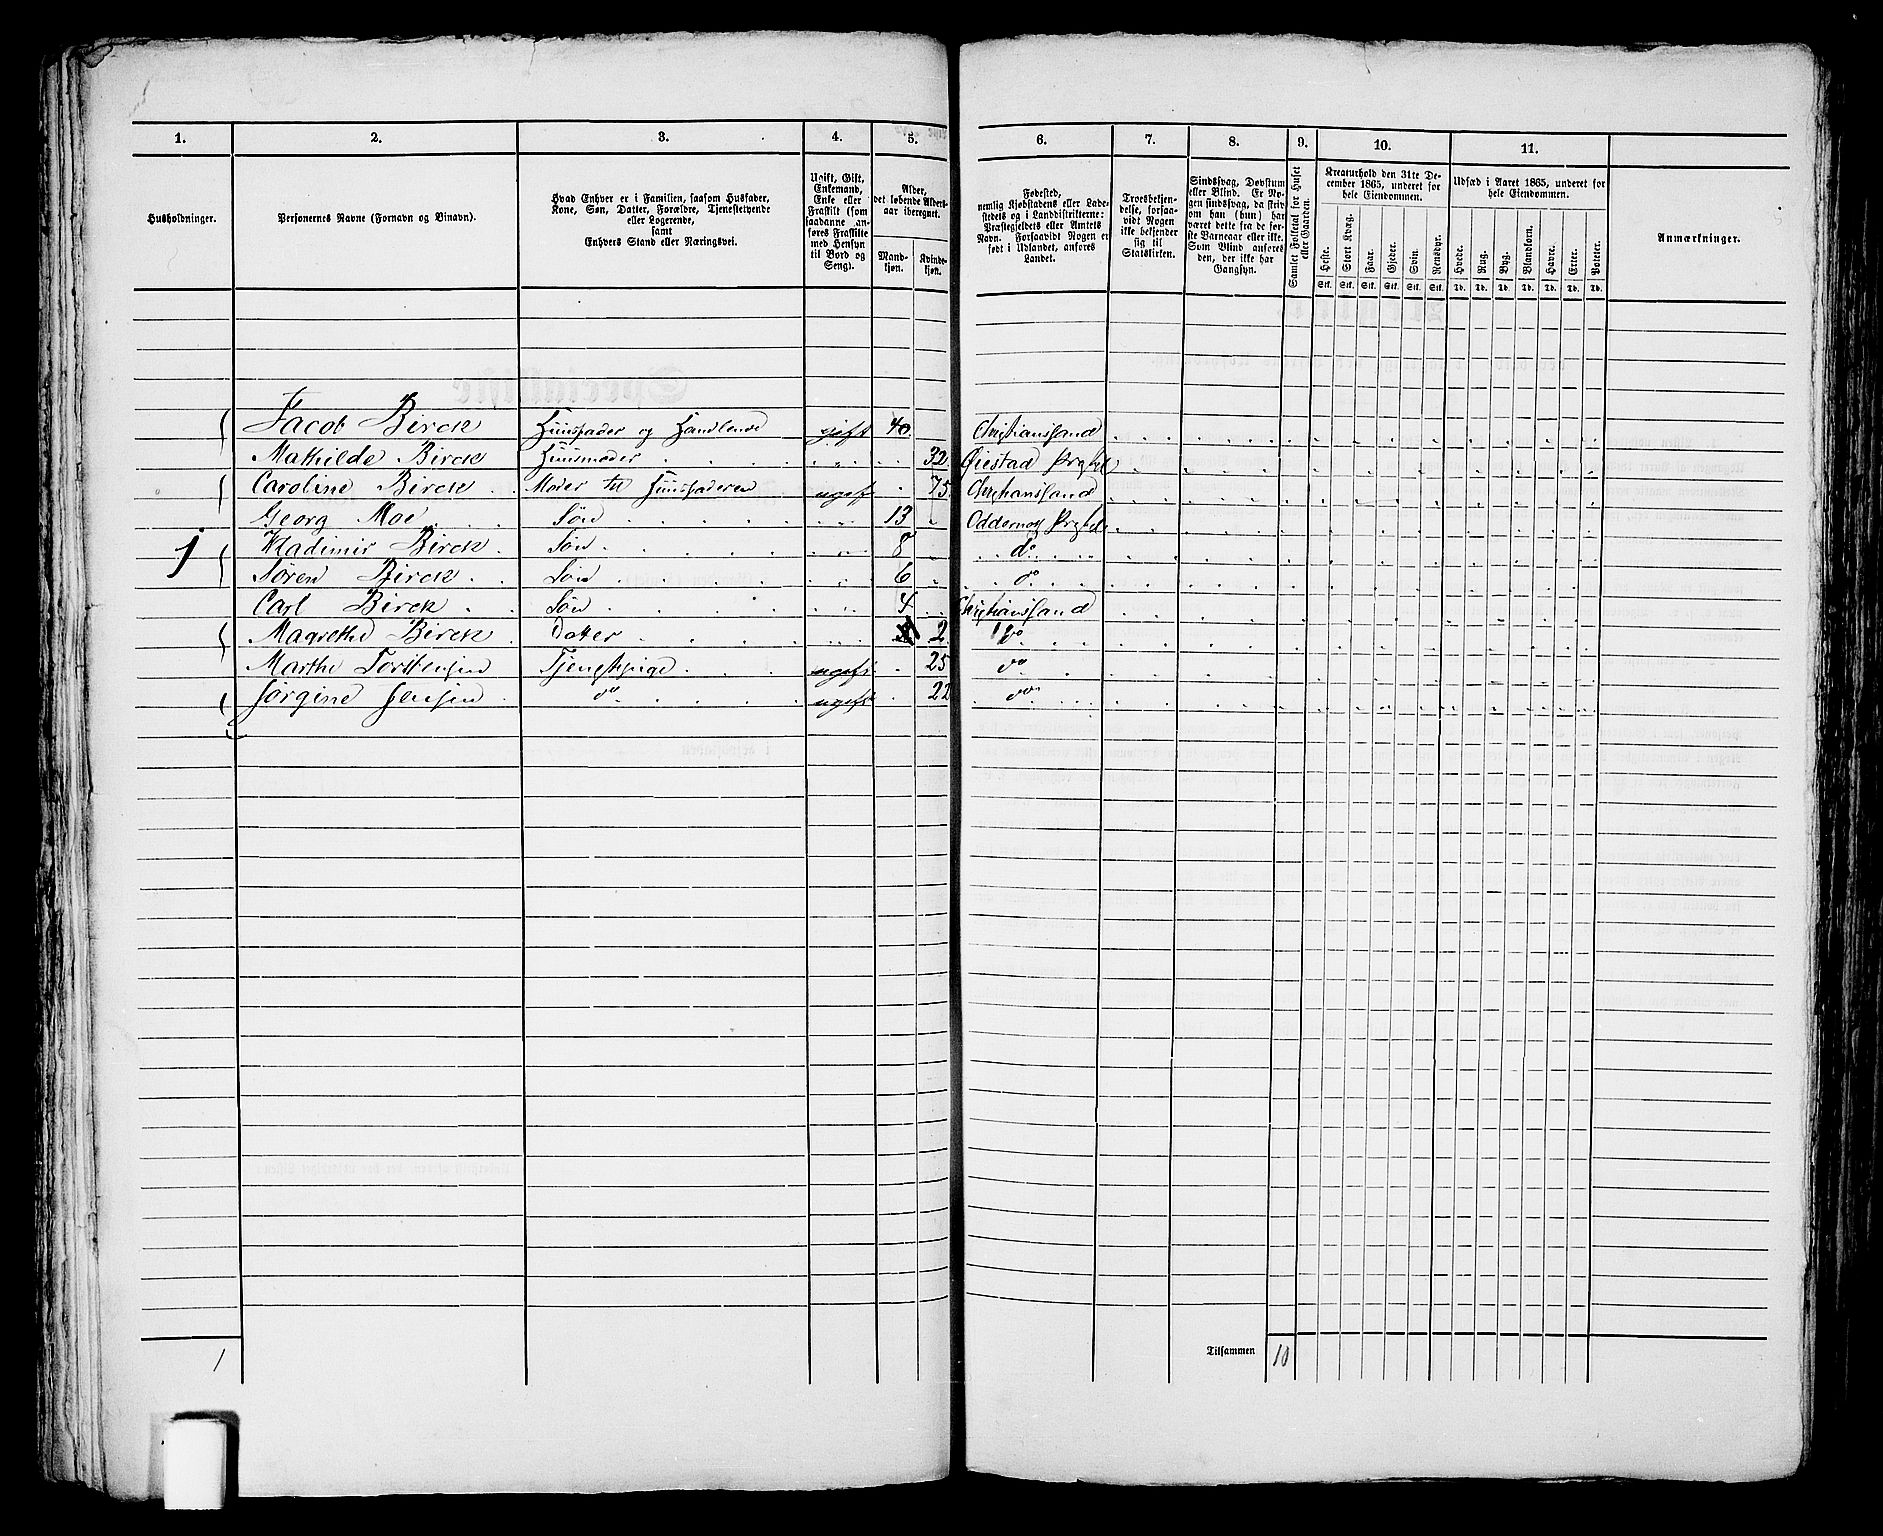 1. 2. 3. 4. 5. 6. 7. 8. 9. 10. 11.
Husholdninger.
Personernes Navne (Fornavn og Binavn).
Hvad Enhver er i Familien, saasom Husfader,
Kone, Søn, Datter, Forældre, Tjenestetyende
eller Logerende,
samt
Enhvers Stand eller Næringsvei.
Ugift, Gift,
Enkemand,
Enke eller
Fraskilt (som
saadanne an-
føres Fraskilte
med Hensyn
til Bord og
Seng).
Alder,
det løbende Alders-
aar iberegnet.
Mand-
kjøn.
Kvinde-
kjøn.
Fødested,
nemlig Kjøbstadens eller Lade-
stedets og i Landdistrikterne:
Præstegjeldets eller Amtets
Navn. Forsaavidt Nogen er
født i Udlandet, anføres
Landet.
Troesbekjen-
delse, forsaa-
vidt Nogen
ikke bekjender
sig til
Statskirken.
Sindssvag, Døvstum
eller Blind. Er No-
gen sindssvag, da skriv
om han (hun) har
været dette fra de før-
ste Barneaar eller ikke.
Som Blind anføres
den, der ikke har
Gangsyn.
Samlet Folketal for Huset
eller Gaarden.
Kreaturhold den 31te De-
cember 1865, underet for
hele Eiendommen.
Heste. Stort Kvæg. Faar. Gjeder. Svin. Rensdyr.
Stk. Stk. Stk. Stk. Stk. Stk.
Udsæd i Aaret 1865, underet for
hele Eiendommen.
Hvede. Rug. Byg. Blandkorn. Havre. Erter. Poteter.
Td. Td. Td. Td. Td. Td. Td.
Anmærkninger.
Jacob Birck Huusfader og Handlende gift 40 Christianssand
Mathilde Birck Huusmoder " 32 Øiestad Prgjeld
Caroline Birck Moder til Huusfaderen ugift 75 Christianssand
Georg Moe Søn " 13 Oddernæs Prgjeld
1 Wladimir Birck Søn " 8 do
Søren Birck Søn " 6 do
Carl Birck Søn " 4 Christianssand
Magrethe Birck Datter " 2 do
Marthe Torstensen Tjenestpige ugift 25 do
Jørgine Jensen do ugift 22 do
1 Tilsammen 10